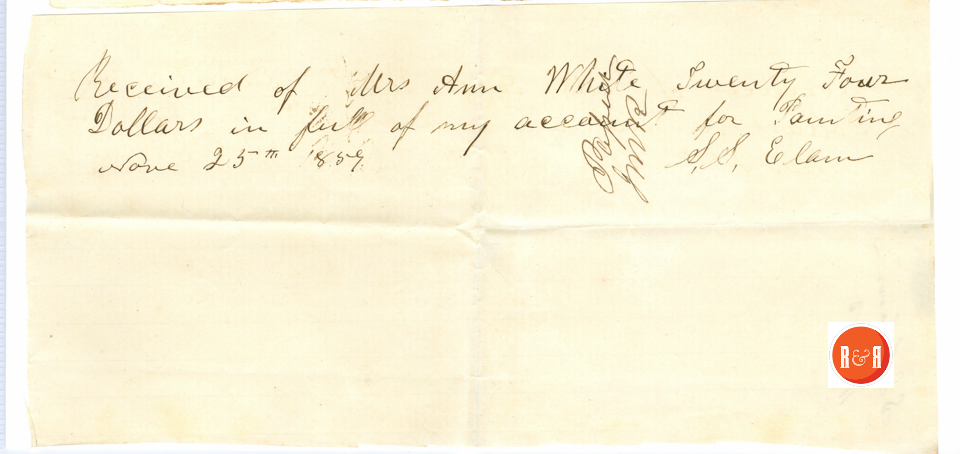 Received of Mrs Ann White Twenty Four
Dollars in full of my account for Painting
Nove 25th 1859
S, S, Elam
R&R